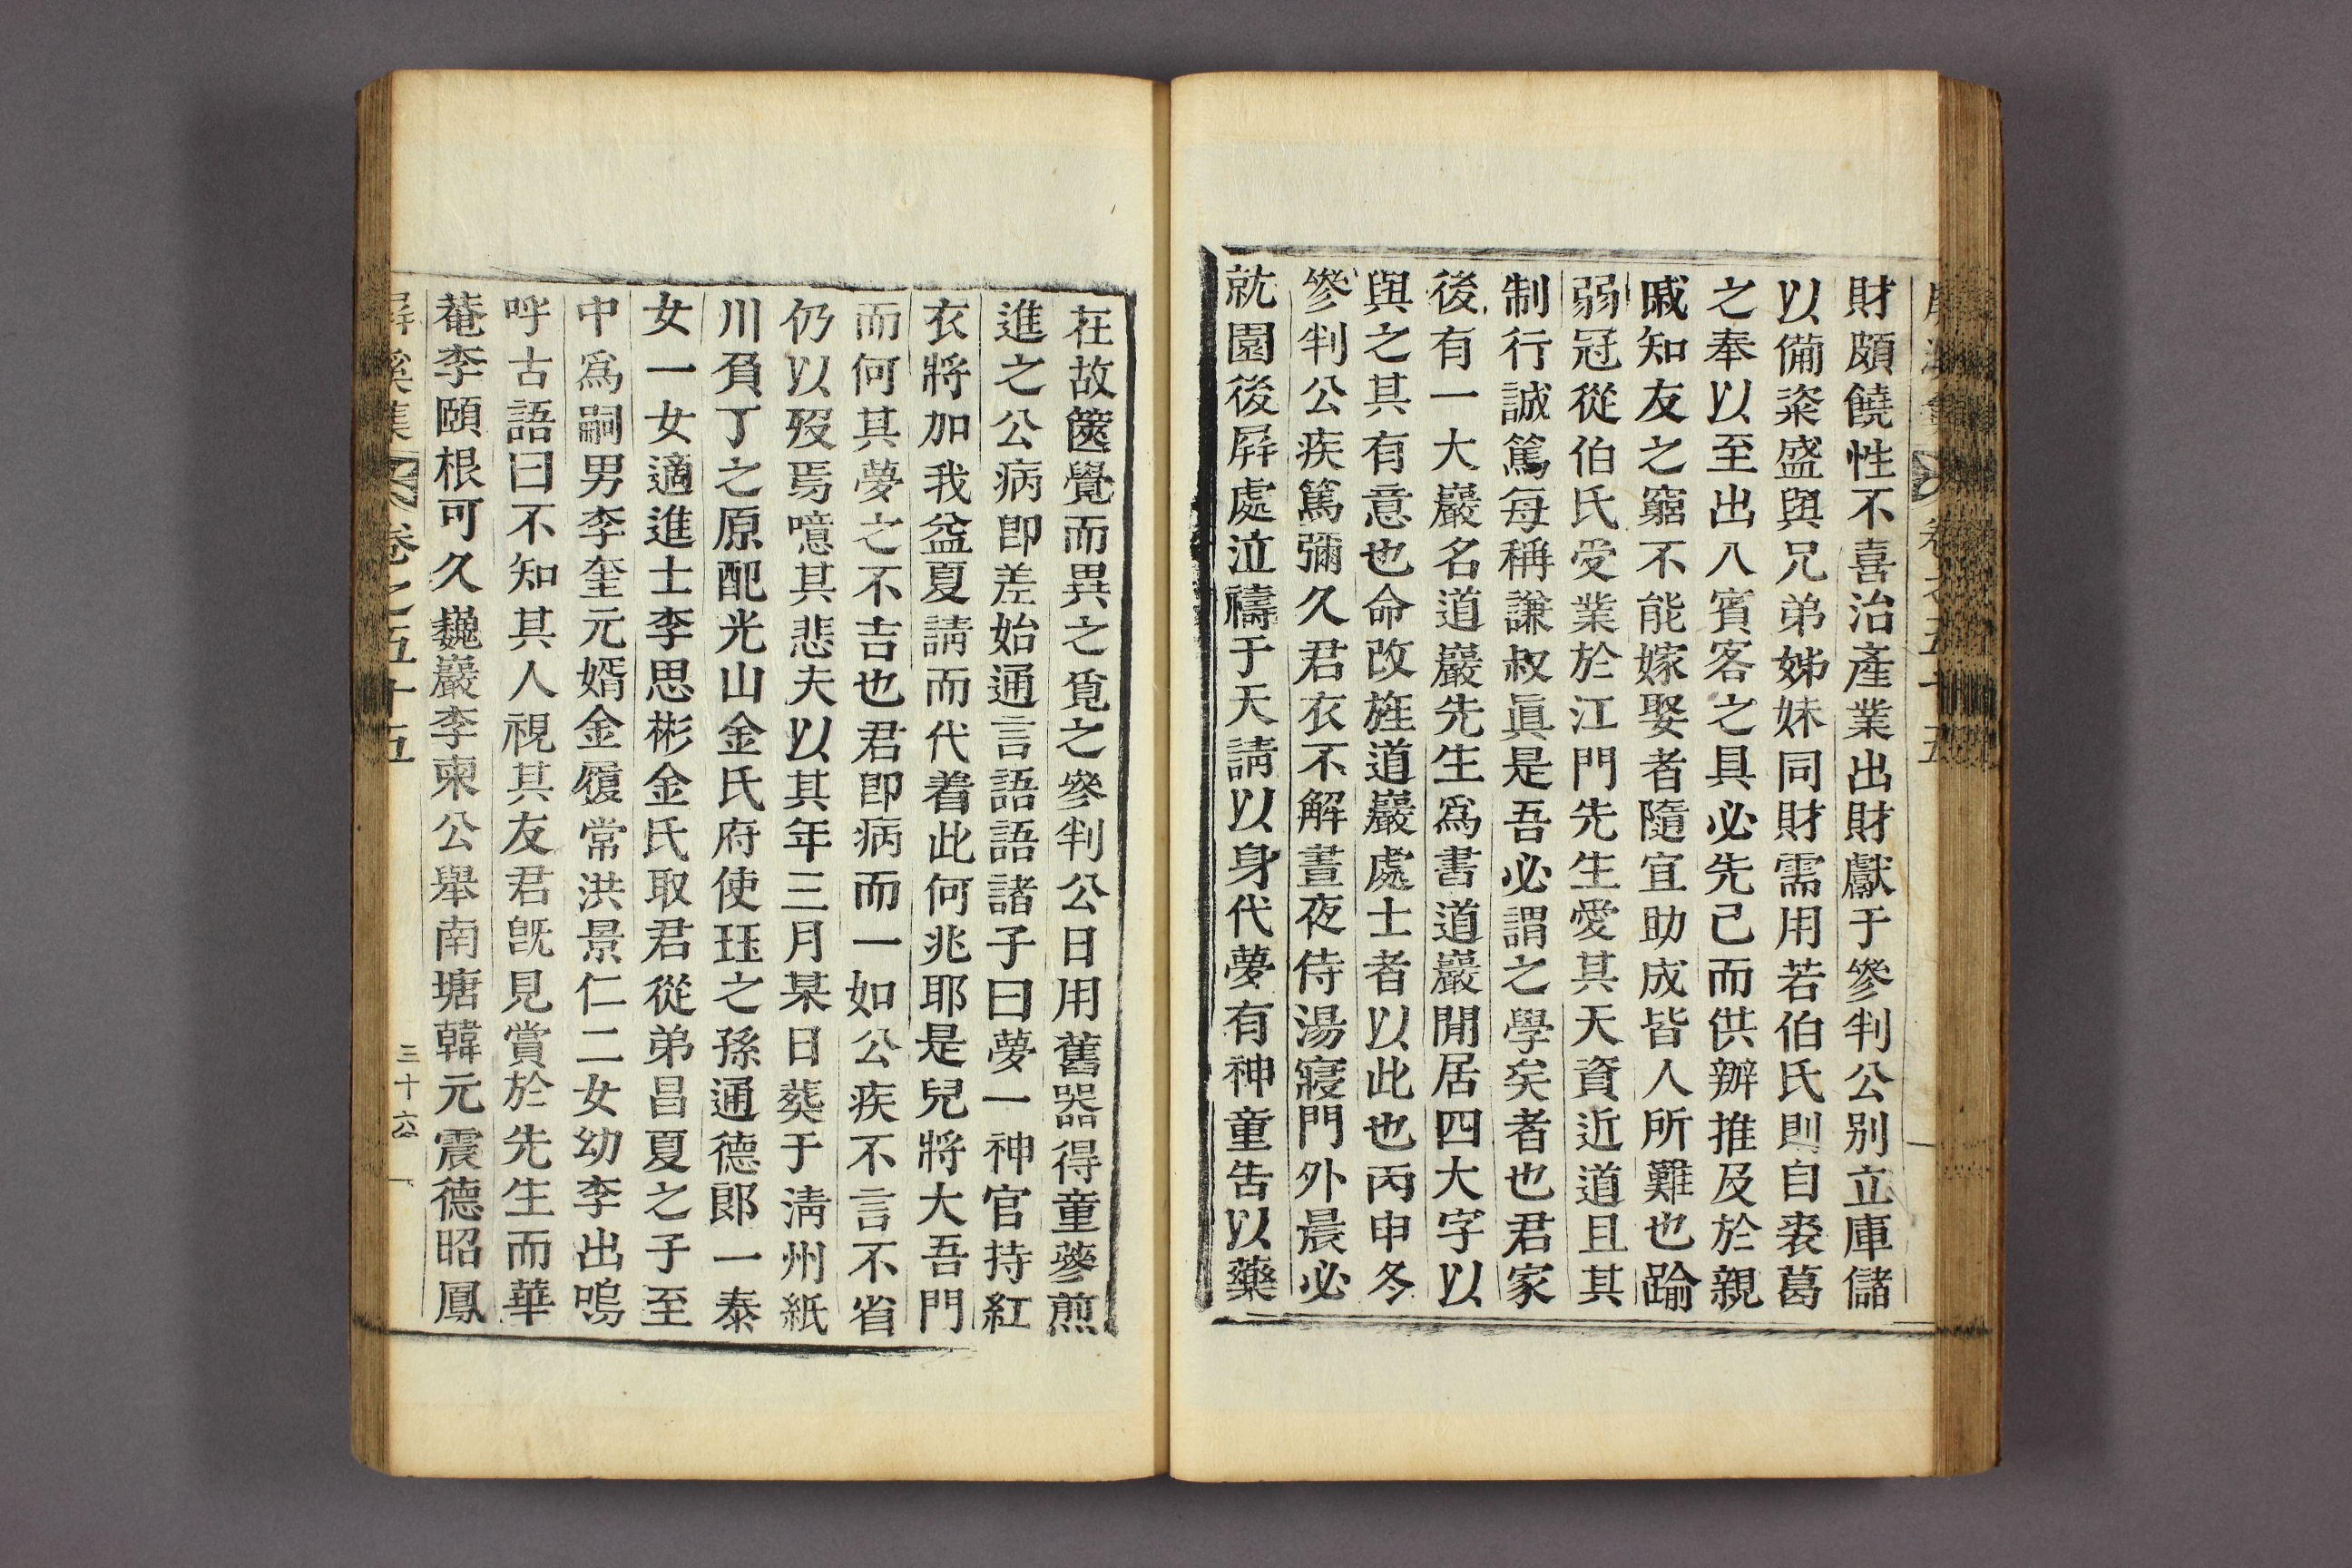 財頗饒性不喜治產業出財獻于參判公別立庫儲
以備粢盛與兄弟姊妹同財需用若伯氏則自裘葛
之奉以至出入賓客之具必先己而供辦推及於親
戚知友之窮不能嫁娶者隨宜助成皆人所難也踰
弱冠從伯氏受業於江門先生愛其天資近道且其
制行誠篤每稱謙叔眞是吾必謂之學矣者也君家
後有一大巖名道巖先生爲書道巖閒居四大字以
與之其有意也命改旌道巖處士者以此也丙申冬
參判公疾篤彌久君衣不解晝夜侍湯寢門外晨必
就園後屛處泣禱于天請以身代夢有神童告以藥
在故篋覺而異之覓之參判公日用舊器得童蔘煎
進之公病卽差始通言語語諸子曰夢一神官持紅
衣將加我益夏請而代着此何兆耶是兒將大吾門
而何其夢之不吉也君卽病而一如公疾不言不省
仍以歿焉噫其悲夫以其年三月某日葬于淸州紙
川負丁之原配光山金氏府使珏之孫通德郞一泰
女一女適進士李思彬金氏取君從弟昌夏之子至
中爲嗣男李奎元婿金履常洪景仁二女幼李出嗚
呼古語曰不知其人視其友君旣見賞於先生而華
菴李頤根可久巍巖李柬公舉南塘韓元震德昭鳳
屛溪集 卷之五十五 三十六